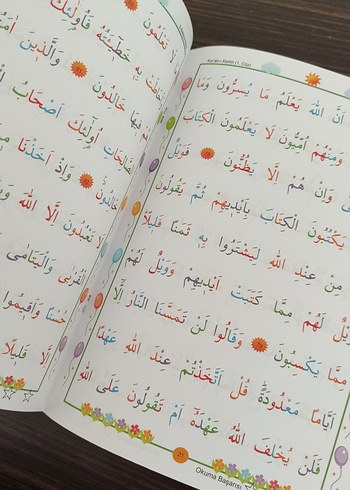 Kur'an-ı Kerim (1. Cüz)
اَنَّ اللهَ يَعْلَمُ مَا يُسِرُّونَ وَمَا
وَمِنْهُمْ اُمِّيُّونَ لَا يَعْلَمُونَ الْكِتَابَ
وَاِنْ هُمْ اِلَّا يَظُنُّونَ فَوَيْلٌ
يَكْتُبُونَ الْكِتَابَ بِاَيْدِيهِمْ ثُمَّ يَقُولُونَ
مِنْ عِنْدِ اللهِ لِيَشْتَرُوا بِهِ ثَمَنًا قَلِيلًا
لَهُمْ مِمَّا كَتَبَتْ اَيْدِيهِمْ وَوَيْلٌ لَهُمْ
مِمَّا يَكْسِبُونَ وَقَالُوا لَنْ تَمَسَّنَا النَّارُ اِلَّا
اَيَّامًا مَعْدُودَةً قُلْ اَتَّخَذْتُمْ عِنْدَ اللهِ عَهْدًا
فَلَنْ يُخْلِفَ اللهُ عَهْدَهُ اَمْ تَقُولُونَ عَلَى اللهِ
Okuma Başarısı
لَا تَعْلَمُونَ
بِهِ خَطِيئَتُهُ فَاُولٰئِكَ
فِيهَا خَالِدُونَ وَالَّذِينَ
اُولٰئِكَ اَصْحَابُ
خَالِدُونَ وَاِذْ اَخَذْنَا
تَعْبُدُونَ اِلَّا اللهَ
الْقُرْبٰى وَالْيَتَامٰى
حُسْنًا وَاَقِيمُوا
اِلَّا قَلِيلًا